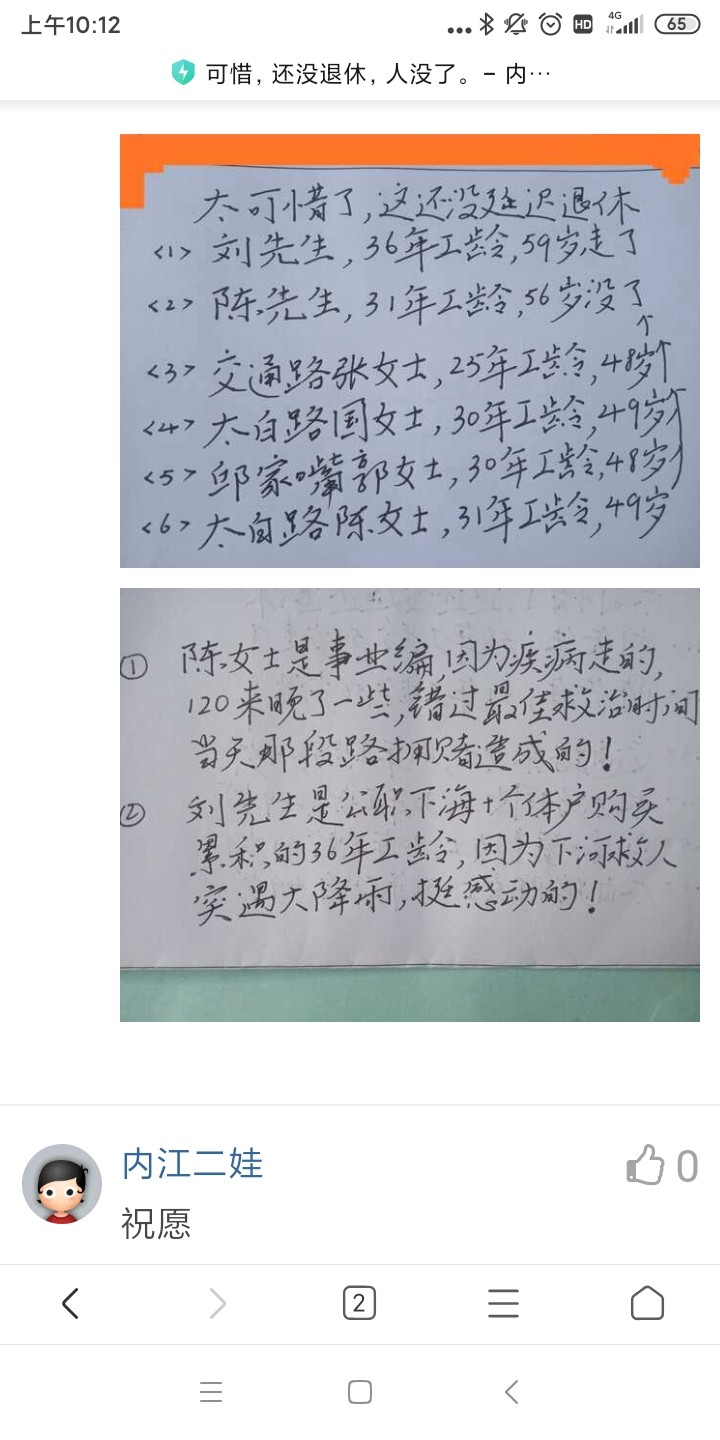 上午10:12
4G
HD
65
可惜，还没退休，人没了。- 内…
太可惜了,这还没延迟退休
<1> 刘先生, 36年工龄,59岁走了
<2> 陈先生, 31年工龄,56岁没了
<3> 交通路张女士,25年工龄,48岁↑
<4> 太白路国女士,30年工龄,49岁↑
<5> 邱家嘴郭女士,30年工龄,48岁
<6> 太白路陈女士,31年工龄,49岁
① 陈女士是事业编,因为疾病走的,
120来晚了一些,错过最佳救治时间
当天那段路拥堵造成的!
② 刘先生是公职下海+个体户购买
累积的36年工龄,因为下河救人
突遇大降雨,挺感动的!
内江二娃
0
祝愿
2